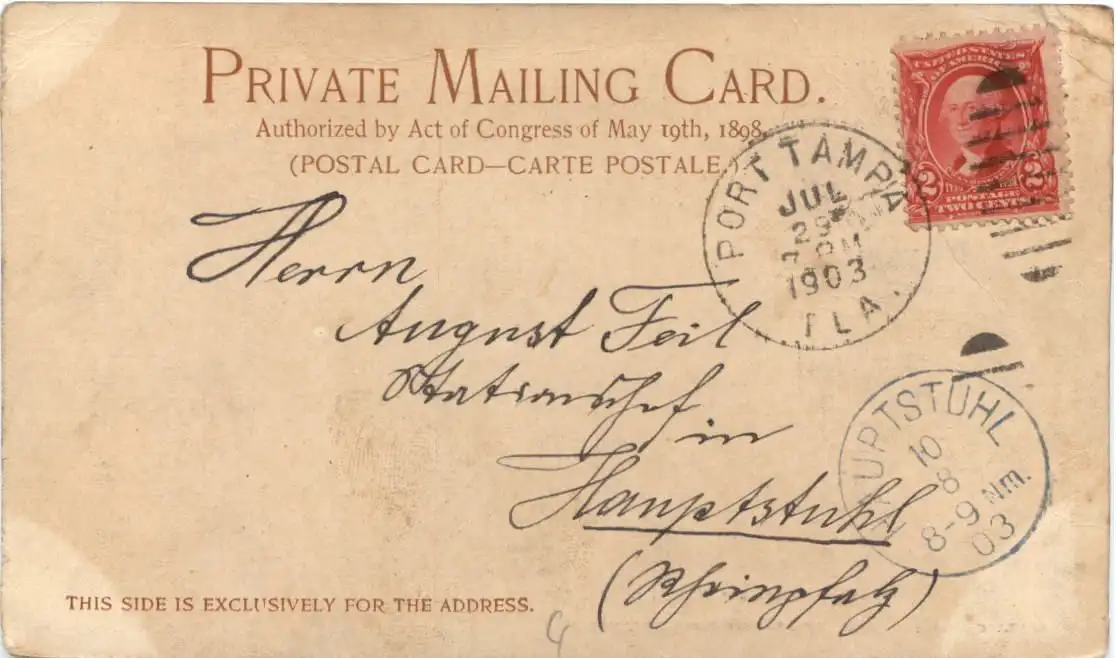 PRIVATE MAILING CARD.
Authorized by Act of Congress of May 19th, 1898.
(POSTAL CARD—CARTE POSTALE.)
UNITED STATES
OF AMERICA
2 2
POSTAGE
TWO CENTS
PORT TAMPA
JUL
29
PM
1903
FLA.
Herrn
August Feil
Stationschef
in
Hauptstuhl
(Rheinpfalz)
UPTSTUHL
10
8
8-9 Nm.
03
THIS SIDE IS EXCLUSIVELY FOR THE ADDRESS.